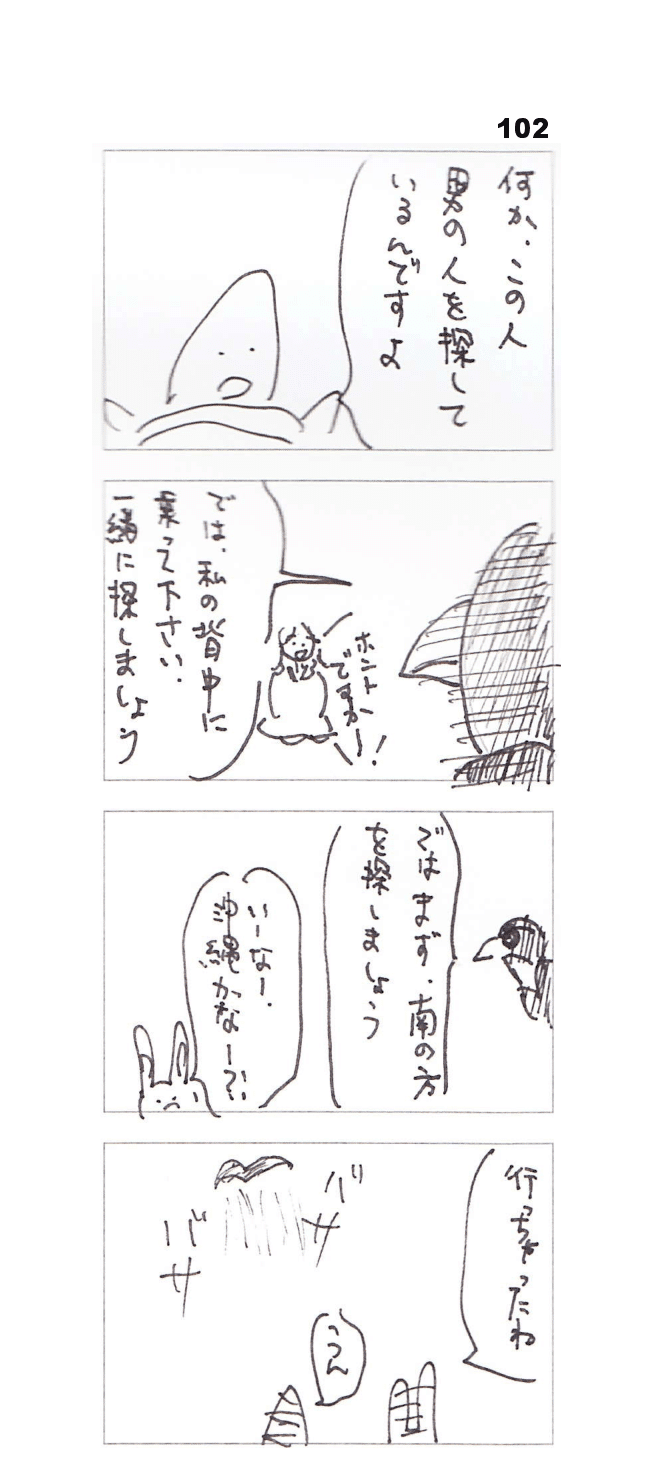 102
何か、この人
男の人を探して
いるんですよ
ホント
ですかー!
では、私の背中に
乗って下さい、
一緒に探しましょう
ではまず、南の方
を探しましょう
いーなー、
沖縄かなー?!
行っちゃったわ
うん
バサ
バサ